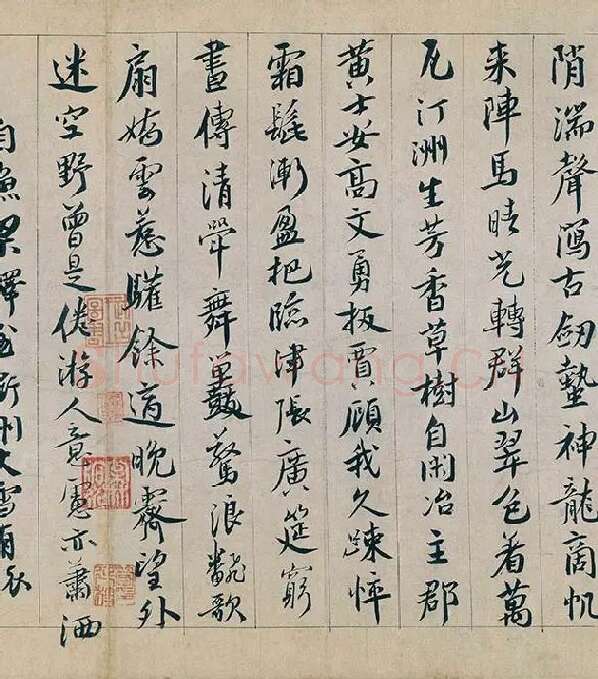 陗湍聲瀉古劔蟄神龍商帆
来陣馬晴光轉群山翠色着萬
瓦汀洲生芳香草樹自閑冶主郡
黄士安高文勇扳賈顧我久踈悴
霜髭漸盈把臨津張廣筵窮
晝傳清斝舞鼉驚浪翻歌
扇嬌雲惹驩餘適晚霽望外
迷空野曾是倦游人意慮亦蕭洒
自漁梁驛至衢州大雪有懷
shufawang.cn